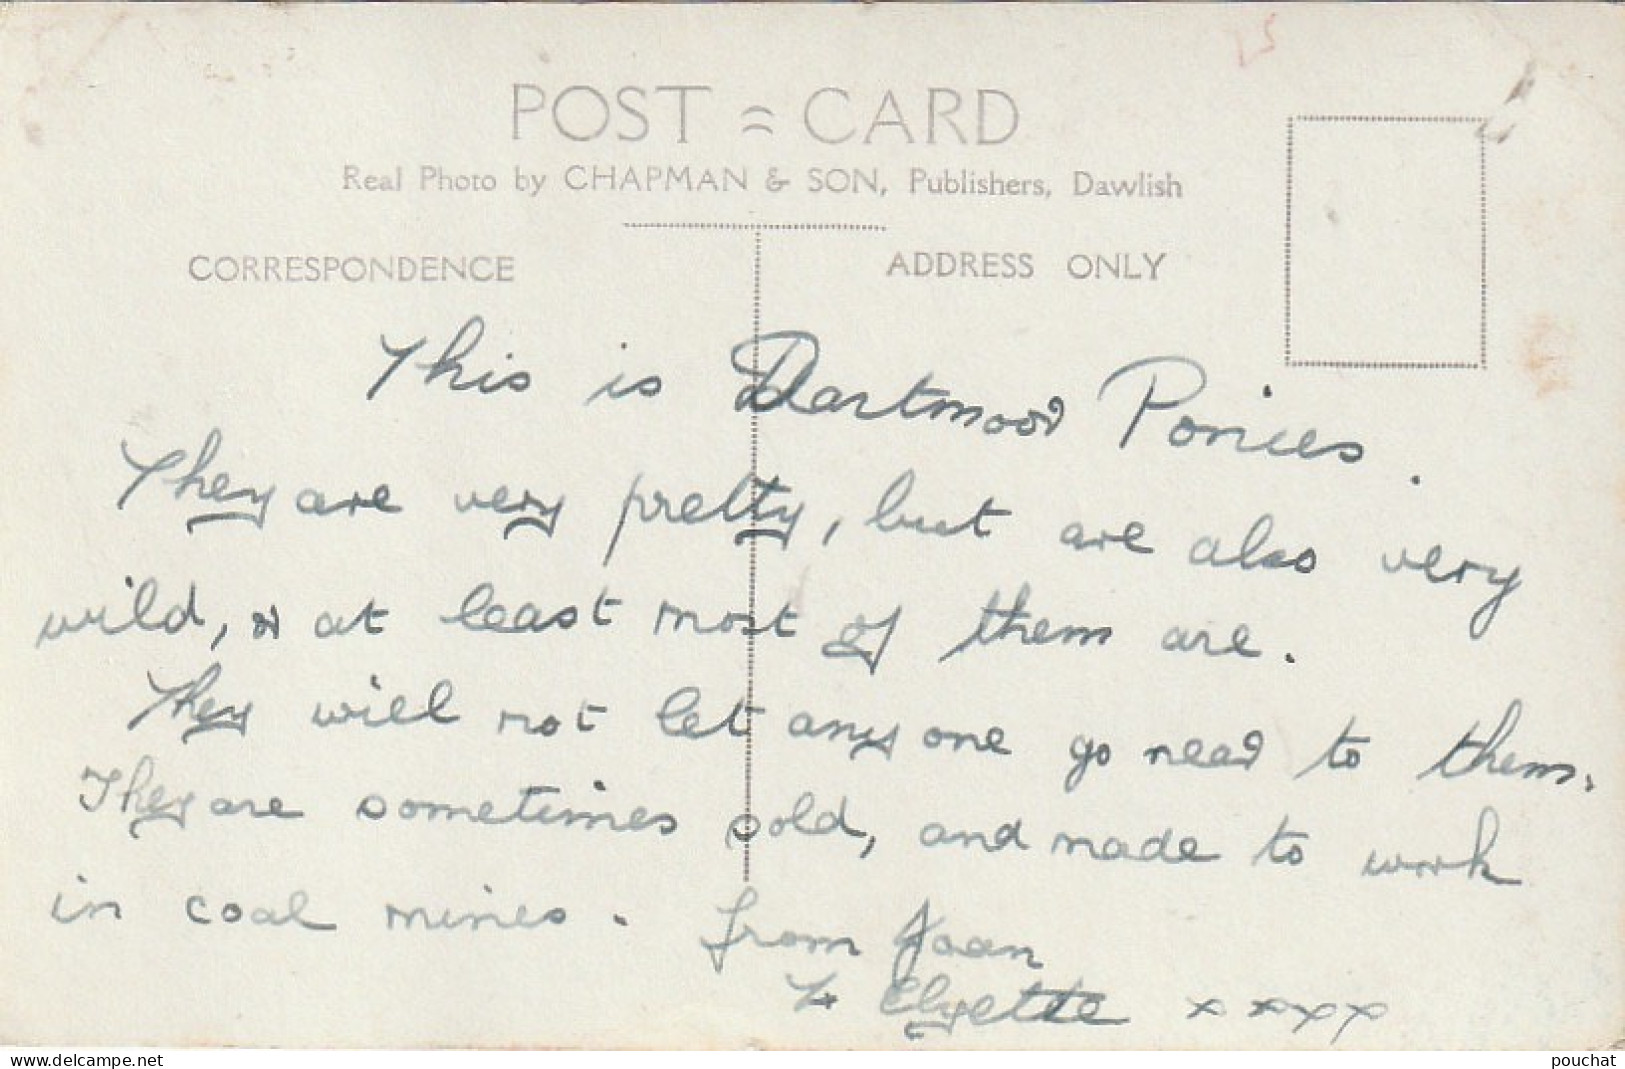 POST = CARD
Real Photo by CHAPMAN & SON, Publishers, Dawlish
CORRESPONDENCE
ADDRESS ONLY
This is Dartmoor Ponies.
They are very pretty, but are also very
wild, or at least most of them are.
They will not let any one go near to them.
They are sometimes sold, and made to work
in coal mines. from Joan
to Elyette xxxx
www.delcampe.net
pouchat